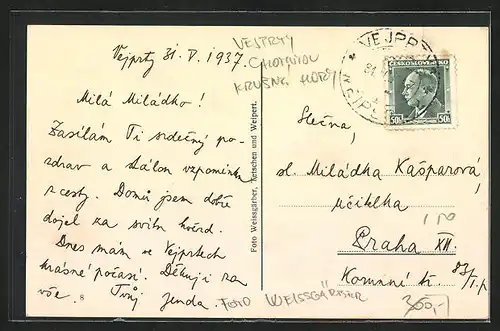 Vejprty 31. V. 1937.
VEJPRTY
CHOMUTOV
KRUŠNÉ HORY
Milá Miládko!
Zasílám Ti srdečný po-
zdrav a stálou vzpomínku
z cesty. Domů jsem dobře
dojel za svitu hvězd.
Dnes mám ve Vejprtech
krásné počasí. Děkuji za
vše. Tvůj Jenda.
8
Foto Weissgärber, Pletschen und Weipert.
FOTO WEISSGÄRBER
VEJPR
ČESKOSLOVENSKO
50h 50h
Slečna,
sl. Miládka Kašparová,
učitelka
Praha XII.
Korunní tř. 83/I. p.
150
300,-